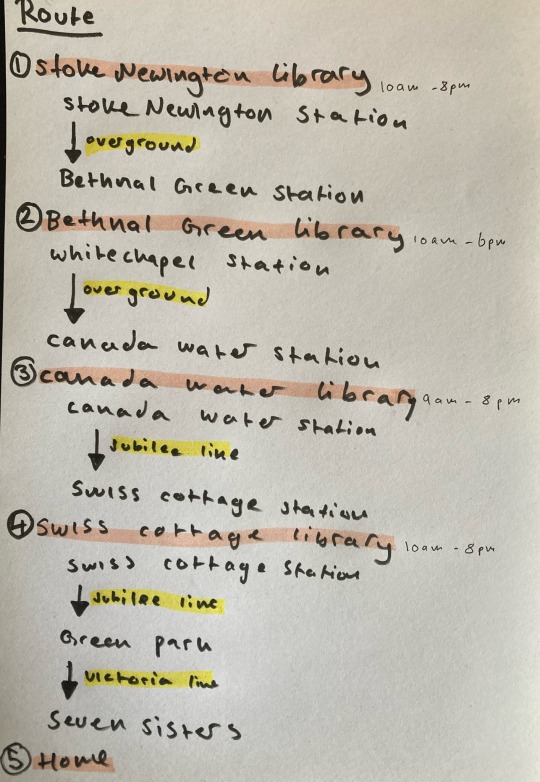 Route
① Stoke Newington Library 10am - 8pm
Stoke Newington Station
overground
Bethnal Green Station
② Bethnal Green Library 10am - 6pm
Whitechapel Station
overground
Canada Water Station
③ Canada Water Library 9am - 8pm
Canada Water Station
Jubilee line
Swiss Cottage Station
④ Swiss Cottage Library 10am - 8pm
Swiss Cottage Station
Jubilee line
Green Park
Victoria line
Seven Sisters
⑤ Home